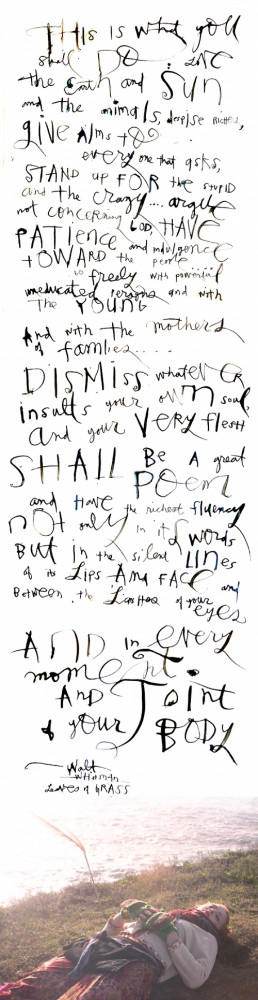 THIS is what you
shall DO. Love
the Earth and SUN
and the animals, despise Riches,
GIVE Alms to
every one that asks,
STAND up FOR the STUPID
and the crazy.... argue
not CONCERNING GOD, HAVE
PATIENCE and indulgence
TOWARD the people.....
go freely with powerful
uneducated persons and with
The YOUNG
And with the mothers
of families.....
DISMISS whatever
insults your own soul,
and your VERY flesh
SHALL Be A great
POEM
and HAVE the richest fluency
NOT only in its words
BUT in the silent LINES
of its LIPS And FACE and
Between the Lashes of your eyes
AND in every
moment.
And Joint
of your BODY
— Walt
WHITMAN
Leaves of GRASS